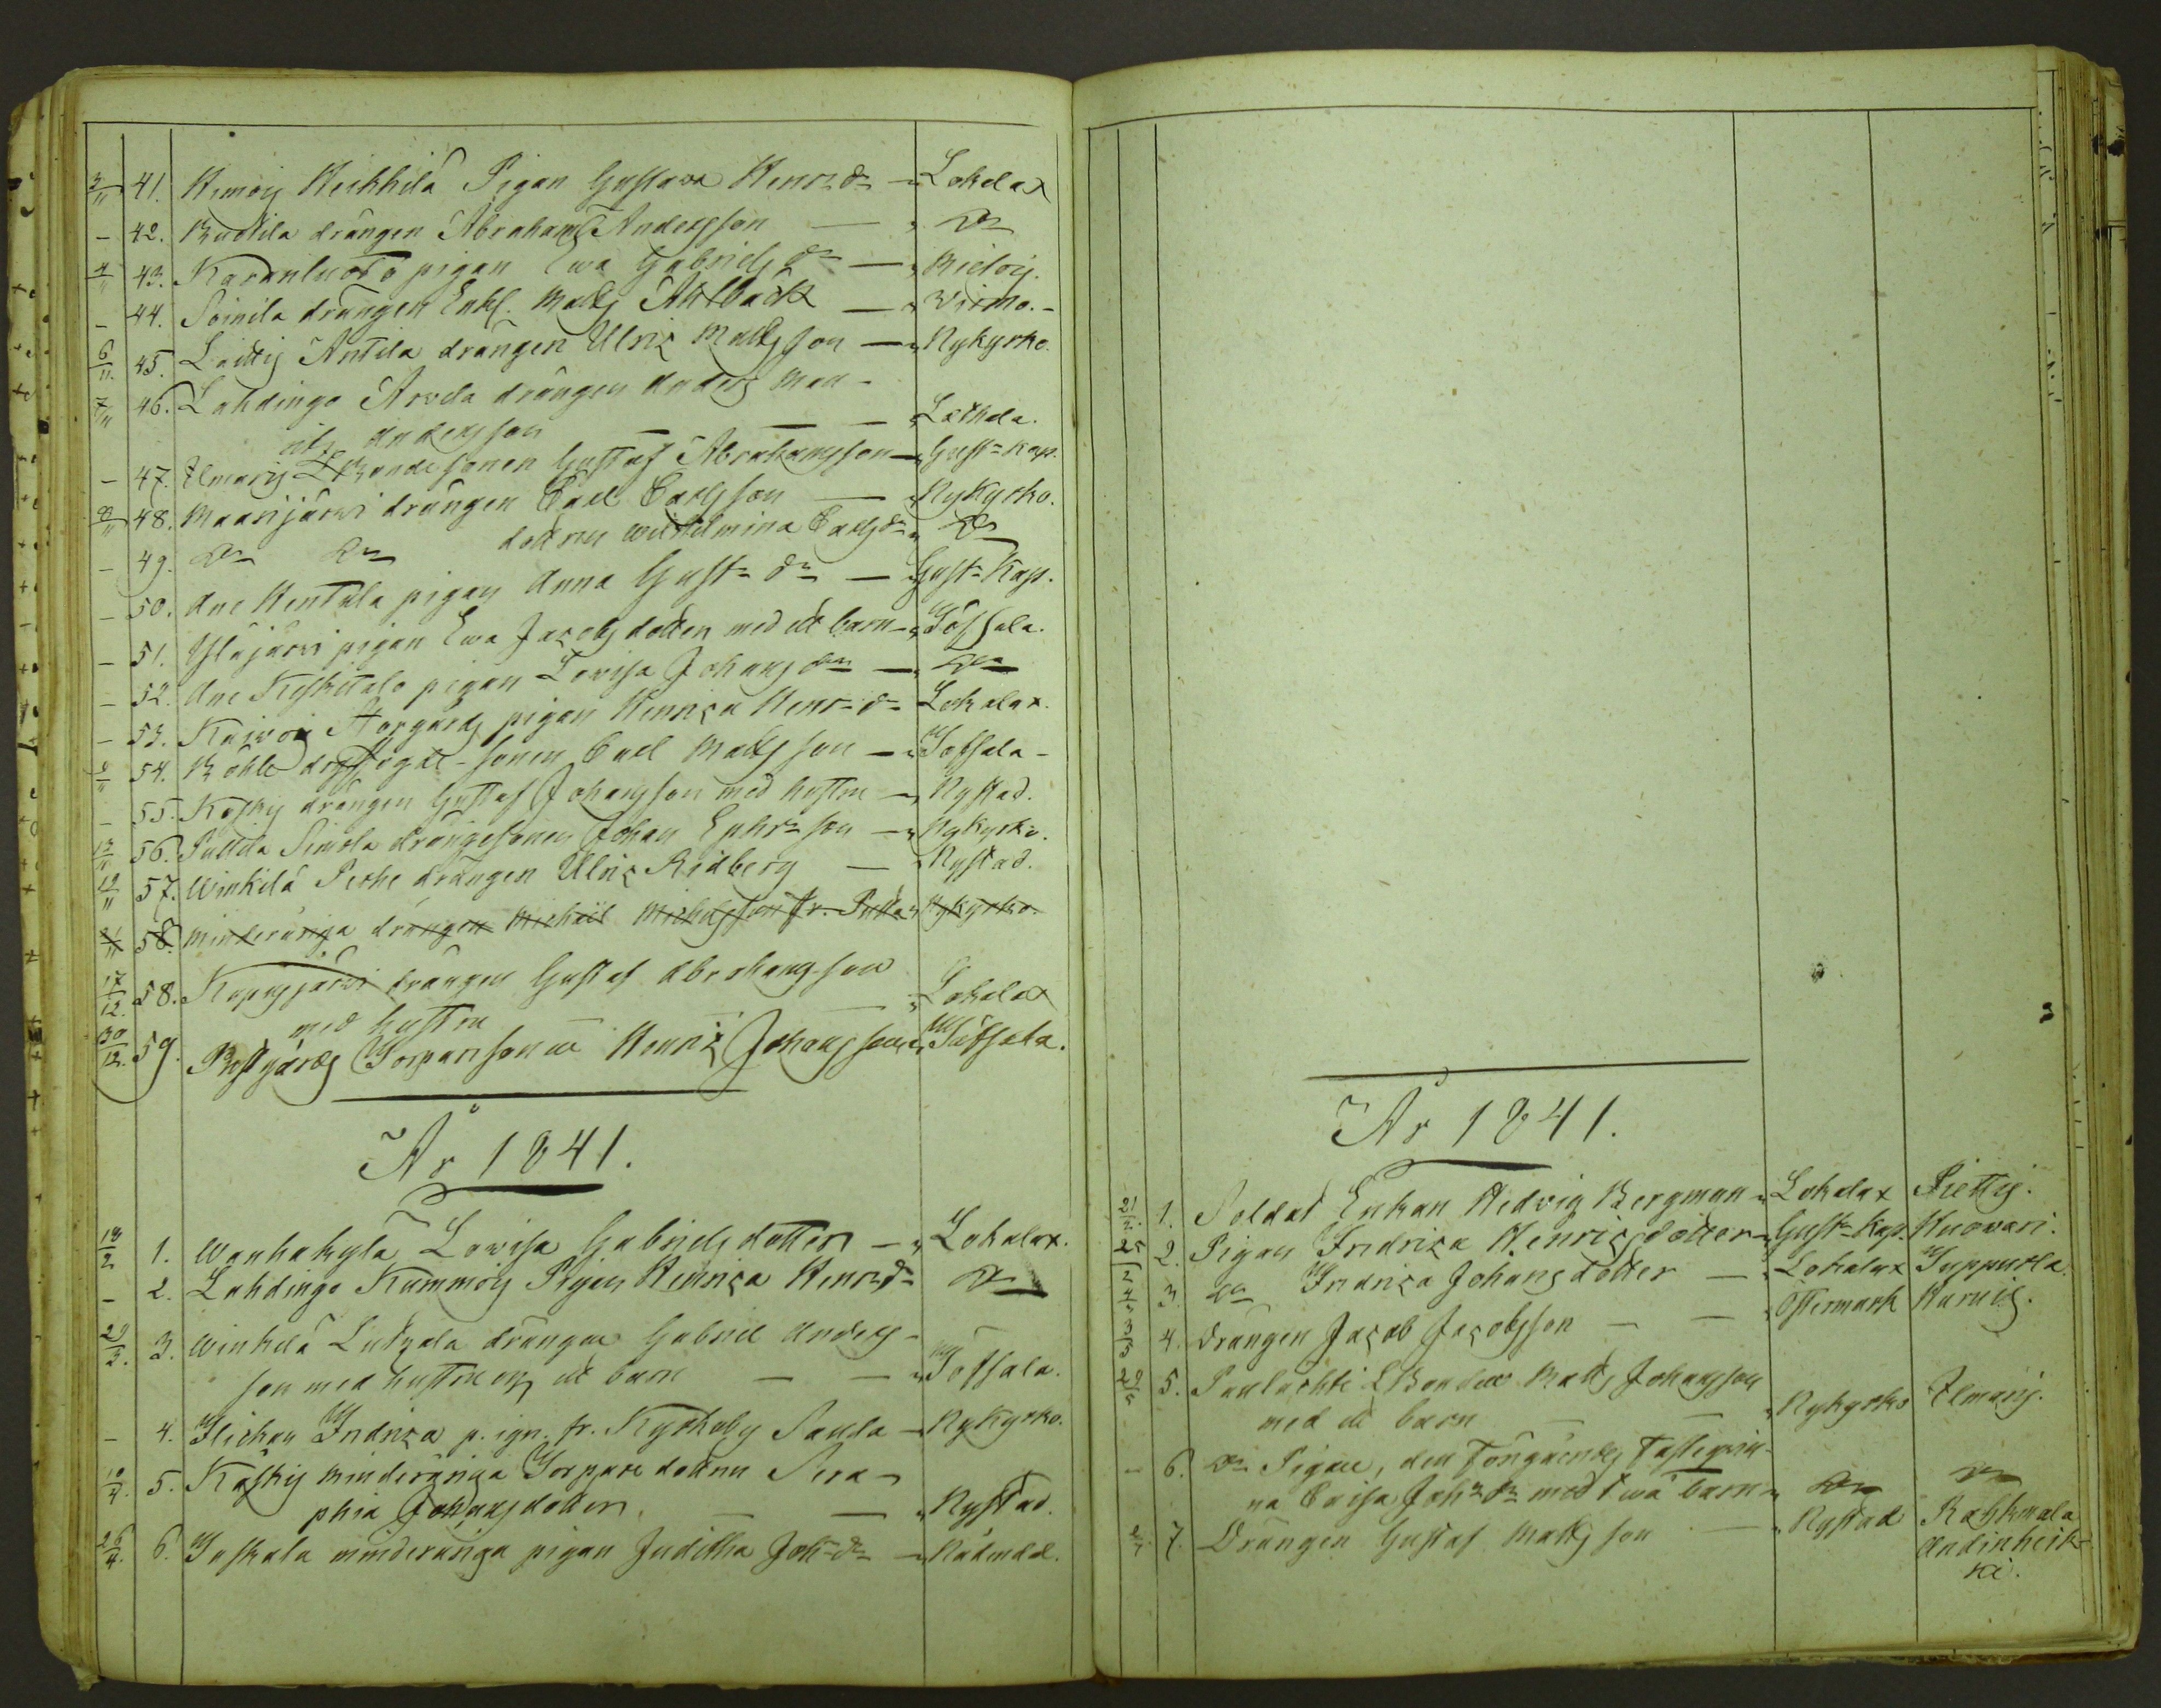 3/11 41. Kimois Heikkilä Pigan Gustava Henr:dr — Lokalax
— 42. Ruotila drängen Abraham Andersson — Do
4/11 43. Karanluoto pigan Ewa Gabriels dr — Mietois.
— 44. Soinila drängen Enkl. Matts Ahlbäck — Virmo. -
6/11. 45. Laittis Antila drängen Ulric Mattsson — Nykyrko.
7/11 46. Lahdingo Arvela drängen Anders Man-
nils Andersson — — — Letala.
— 47. Elmaris Bondesonen Gustaf Abrahamsson — Gust: Kap.
8/11 48. Maarijärvi drängen Carl Carlsson — Nykyrko.
— 49. Do Do dottren Wilhelmina Carlsdr Do
— 50. Ane Kentala pigan Anna Gust: dr — Gust: Kap.
— 51. Yläjärvi pigan Ewa Jacobsdotter med ett barn — Töfsala.
— 52. Ane Keskitalo pigan Lovisa Johans dr — Do
— 53. Kaivois Storgårds pigan Henrica Henr: dr Lokalax.
9/11 54. sonen Carl Mattsson — Tofsala -
— 55. Koskis drängen Gustaf Johansson med hustru — Nystad.
12/11 56. Puttila Simola drängesonen Johan Ephr: son — Nykyrko.
19/11 57. Winkilä Perhe drängen Ulric Ridberg — Nystad.
21/11 58. Minderåriga drängen Michael Michelsson fr. Putta Nykyrko.
17/12. 58. Kapisjärvi drängen Gustaf Abrahamsson
med hustru — — Lokalax
30/12. 59. Prestgårds Torparesonen Henric Johansson Töfsala.
År 1841.
13/2 1. Wanhakylä Lovisa Gabrielsdotter — Lokalax.
— 2. Lahdingo Kummois Pigan Henrica Henr:dr Do
29/3. 3. Winkilä Lukkala drängen Gabriel Anders-
son med hustru och ett barn — — Töfsala.
— 4. Flickan Fredrica p. ign. fr. Kyrkoby Saula — Nykyrko.
10/4. 5. Koskis minderåriga Torpare dottren Sera-
phia Johansdotter. — — Nystad.
26/4. 6. Taskala minderåriga pigan Juditha Joh:dr — Nådendal.
År 1841.
21/2. 1. Soldat Enkan Hedvig Bergman — Lokalax Pietis.
25/2 2. Pigan Fredrica Henricsdotter — Gust: Kap. Huovari.
4/3 3. Do Fredrica Johansdotter — Lokalax Suppurla.
3/3 4. Drängen Jacob Jacobsson — — Östermark Kurais.
5. Bonden Matts Johansson
med ett barn — — Nykyrko Elmaris.
— 6. Do Pigan, den Föregåendes Fästeqvin-
na Caisa Joh: dr med två barn — Do Do
7. Drängen Gustaf Mattsson — Nystad Rahkmala
Andinheik-
ki.